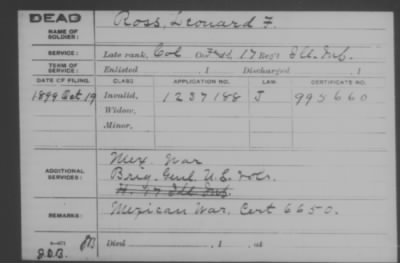 DEAD
NAME OF SOLDIER: Ross, Leonard F.
SERVICE: Late rank, Col Co. F&S, 17 Reg't Ill. Inf.
TERM OF SERVICE: Enlisted , 1 Discharged , 1
DATE OF FILING. CLASS. APPLICATION NO. LAW. CERTIFICATE NO.
1899 Oct 19 Invalid, 1237188 J 995660
Widow,
Minor,
Mex. War
ADDITIONAL SERVICES: Brig. Genl. U.S. Vols.
H. 17 Ill. Inf.
REMARKS: Mexican War. Cert 6650.
Died , 1 , at